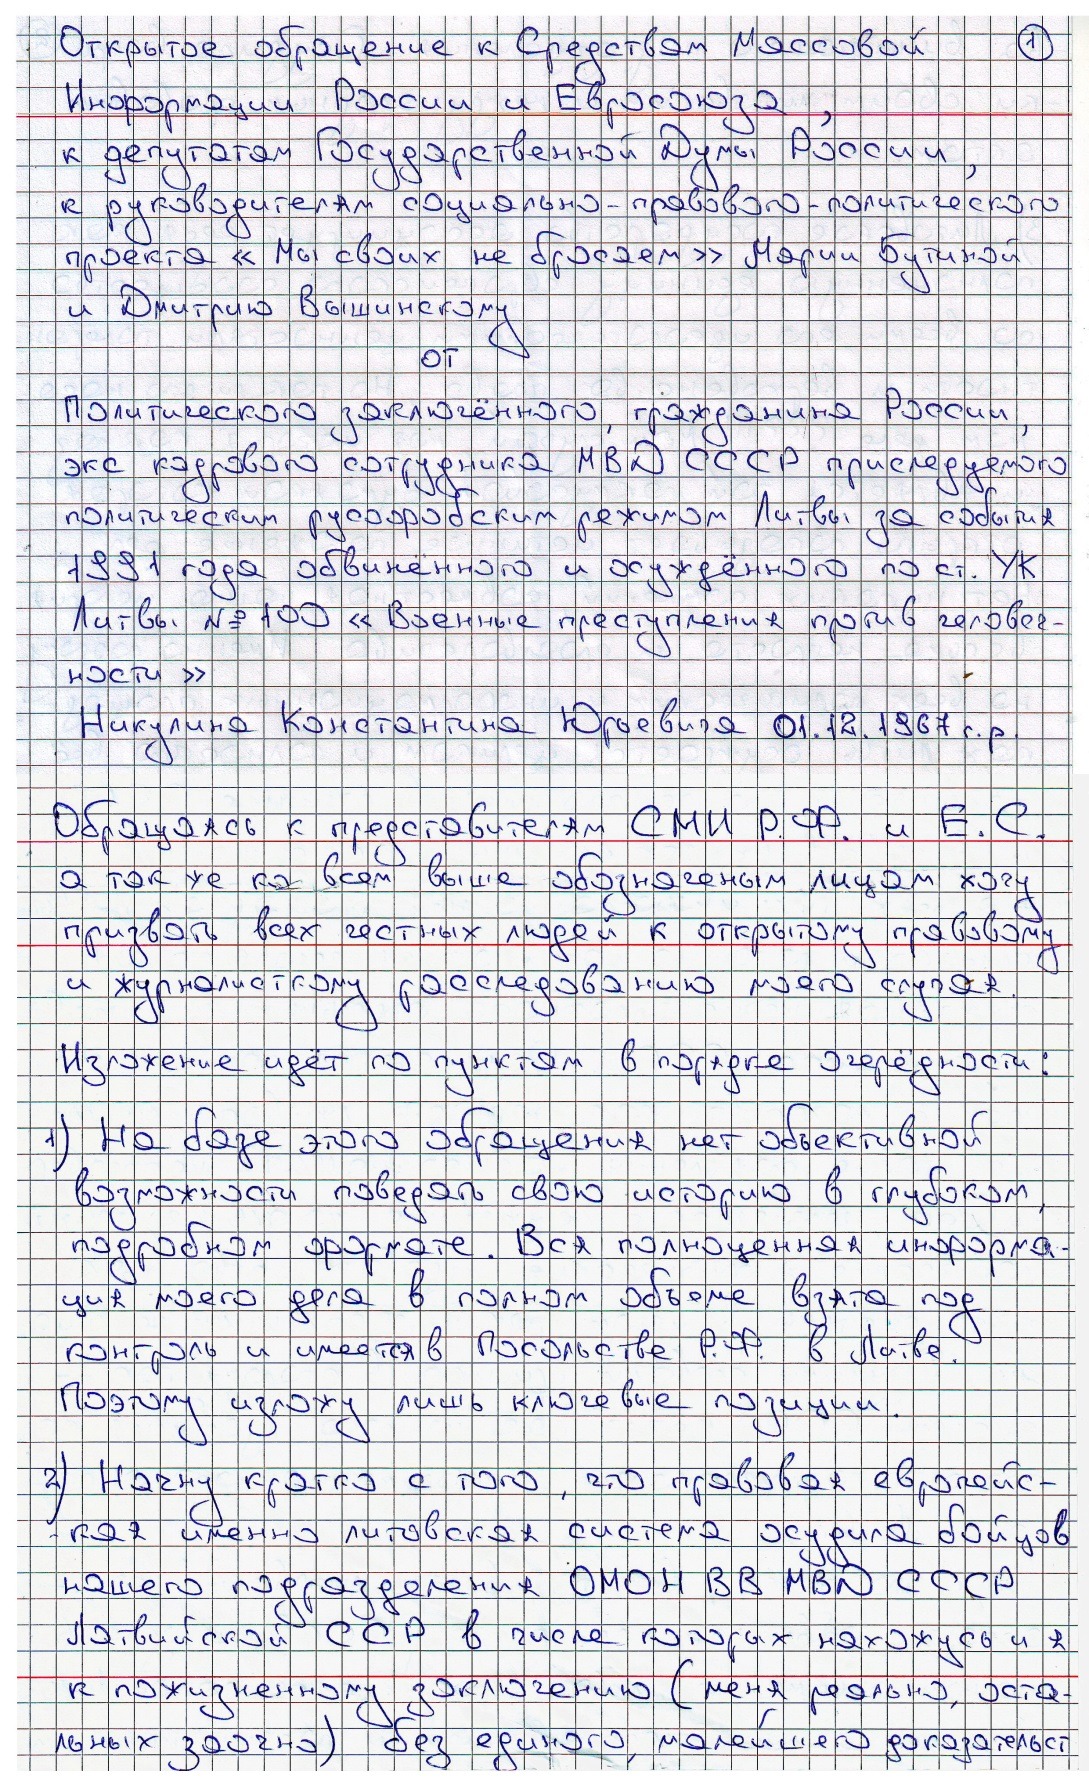 Открытое обращение к Средствам Массовой ①
Информации России и Евросоюза,
к депутатам Государственной Думы России,
к руководителям социально-правового-политического
проекта «Мы своих не бросаем» Марии Бутиной
и Дмитрию Вышинскому
от
Политического заключённого, гражданина России,
экс кадрового сотрудника МВД СССР приследуемого
политическим русофобским режимом Литвы за события
1991 года обвинённого и осуждённого по ст. УК
Литвы № 100 «Военные преступления против человеч-
ности»
Никулина Константина Юрьевича 01.12.1967 г.р.
Обращаясь к представителям СМИ Р.Ф. и Е.С.
а так же ко всем выше обозначеным лицам хочу
призвать всех честных людей к открытому правовому
и журналисткому расследованию моего случая.
Изложение идёт по пунктам в порядке очерёдности:
1) На базе этого обращения нет объективной
возможности поведать свою историю в глубоком,
подробном формате. Вся полноценная информа-
ция моего дела в полном объёме взята под
контроль и имеется в Посольстве Р.Ф. в Литве.
Поэтому изложу лишь ключевые позиции.
2) Начну кратко с того, что правовая европейс-
-кая именно литовская система осудила бойцов
нашего подразделения ОМОН ВВ МВД СССР
Латвийской ССР в числе которых нахожусь и я
к пожизненному заключению (меня реально, оста-
льных заочно) без единого, малейшего доказательст